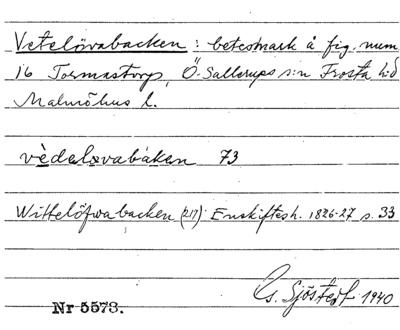 Vetelövabacken : betesmark å fig. num
16 Tormastorp, Ö. Sallerups s:n Frosta hd
Malmöhus l.
vèdeløvabákən 73
Wittelöfwabacken (217) Enskiftesh. 1826-27 s. 33
G. Sjöstedt 1940
Nr 5573.